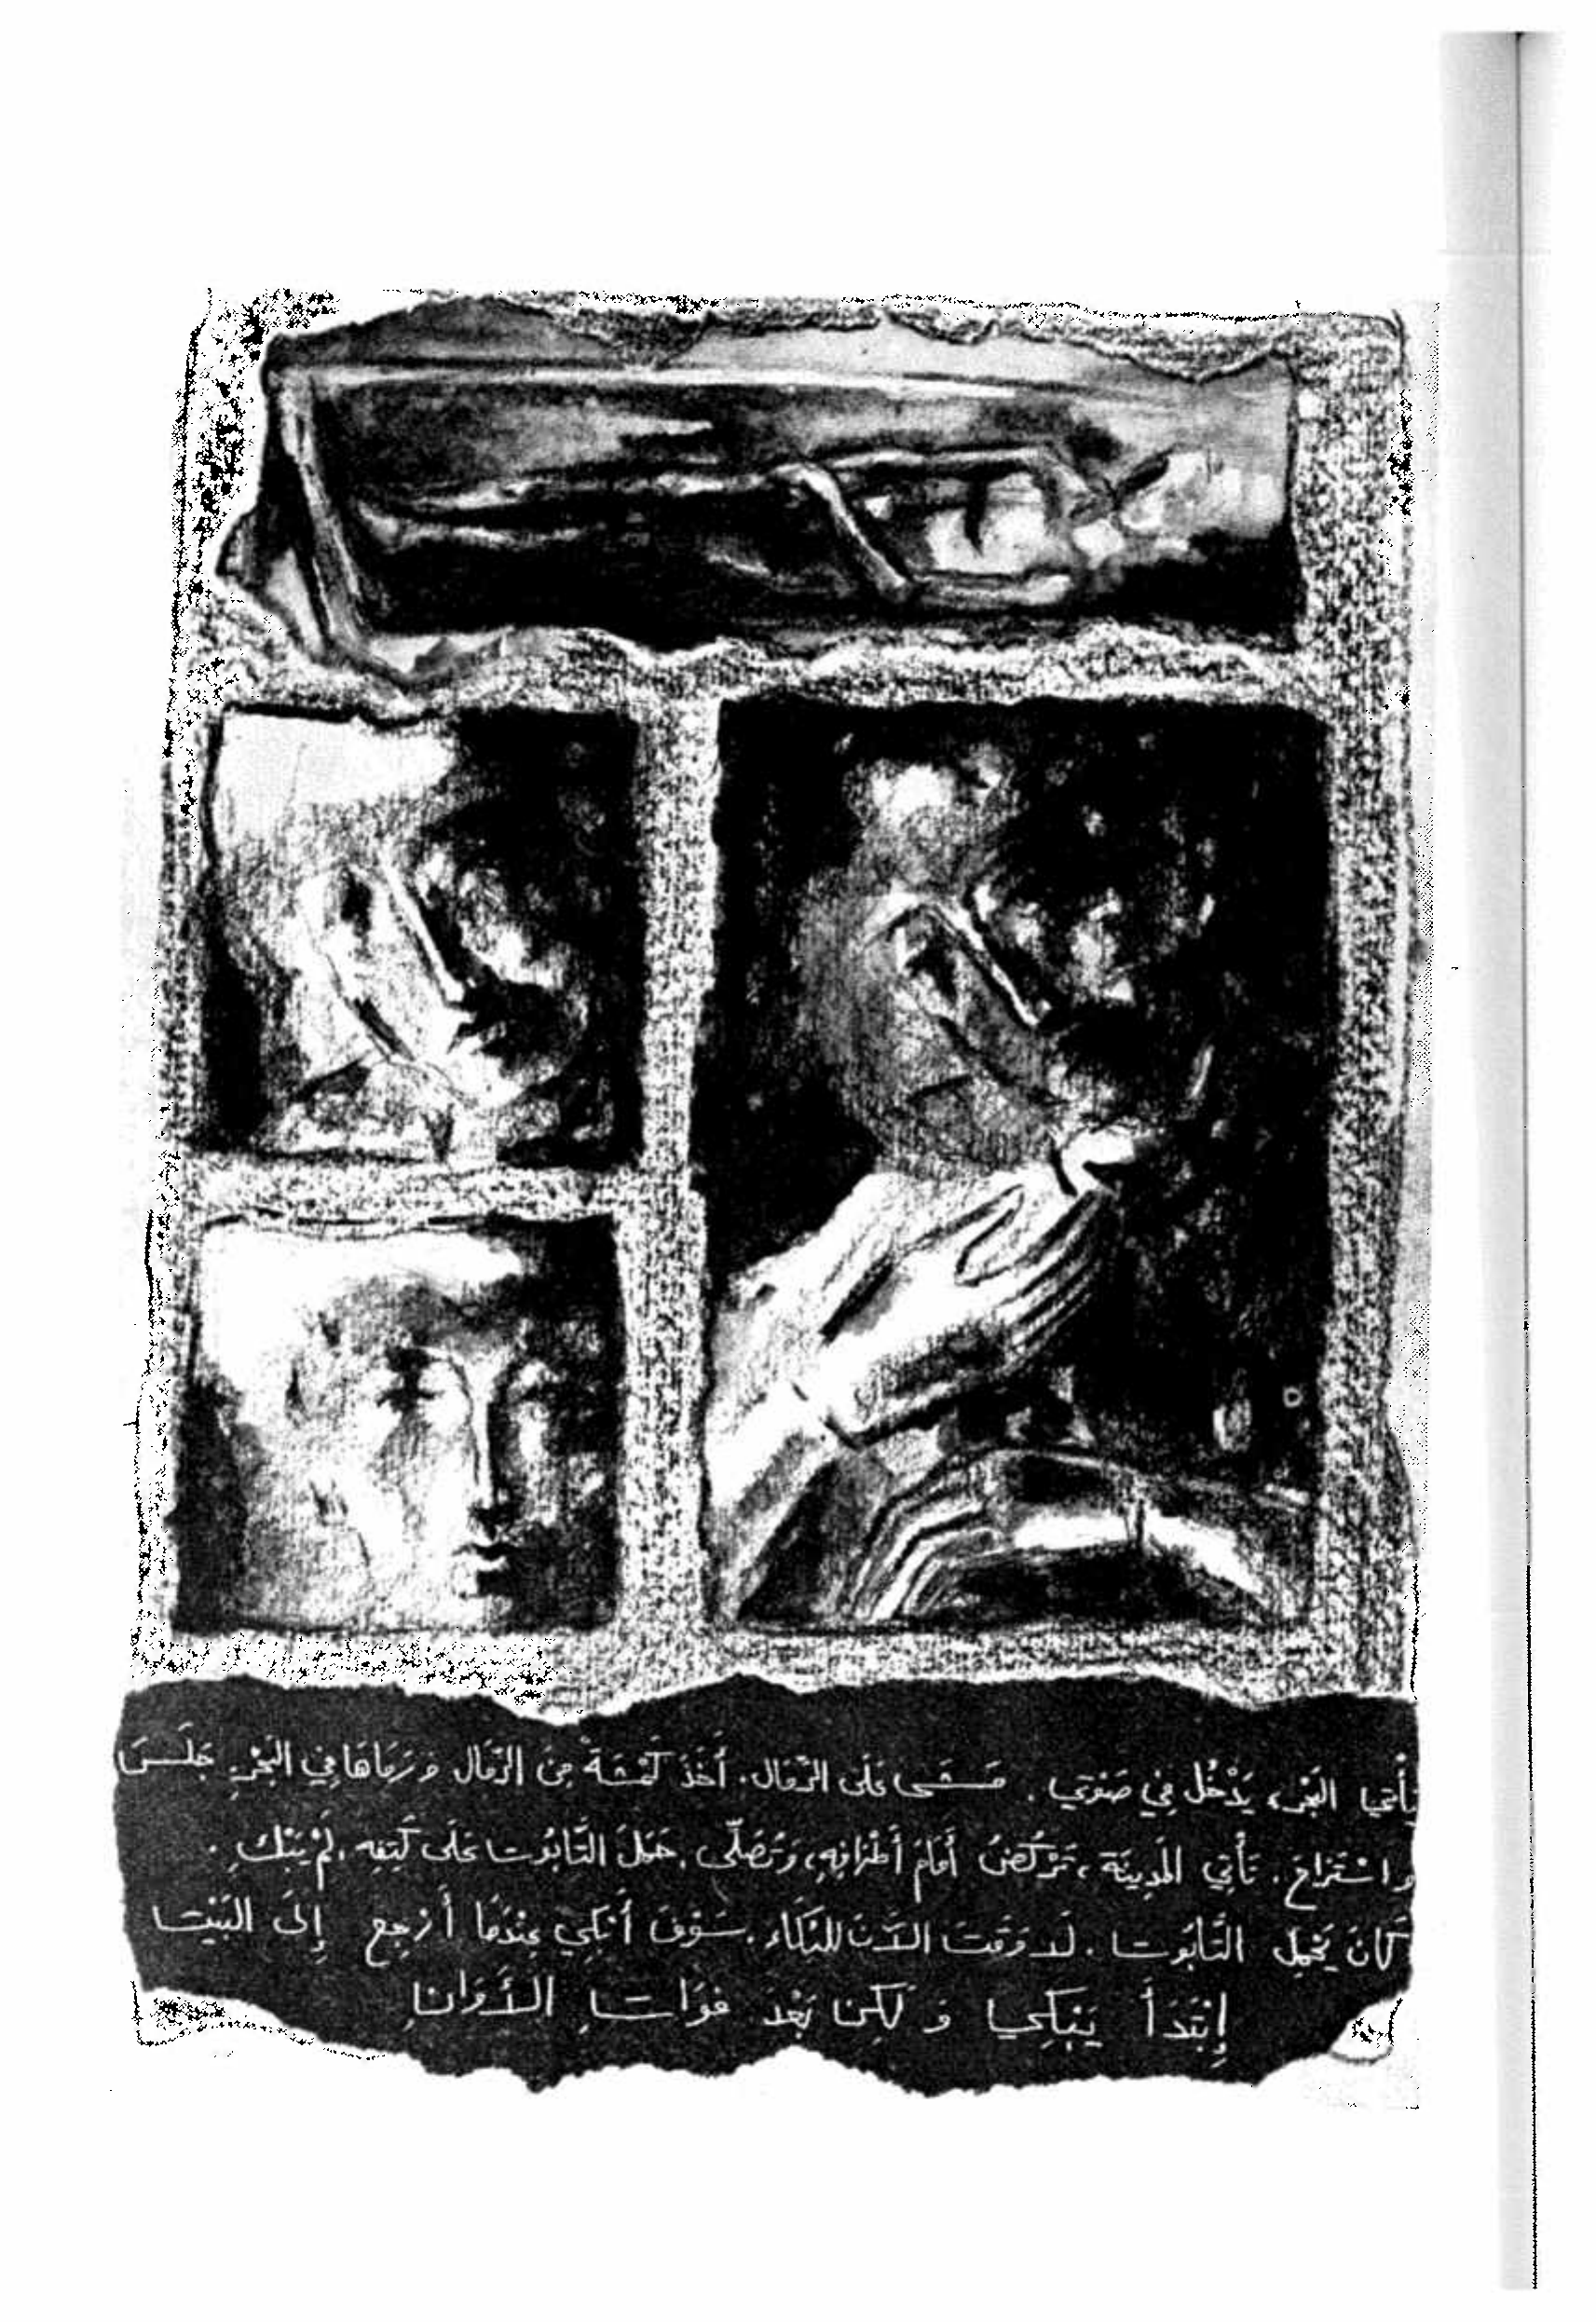 يَأْتِي البَحْرُ، يَدْخُلُ فِي صَوْتِي. مَشَى عَلَى الرِّمَالِ. أَخَذَ كَمْشَةً مِنَ الرِّمَالِ وَرَمَاهَا فِي البَحْرِ. جَلَسَ
وَاسْتَرَاحَ. تَأْتِي المَدِينَةُ، تَرْكُضُ أَمَامَ أَطْرَافِهِ، وَتُصَلِّي. حَمَلَ التَّابُوتَ عَلَى كَتِفِهِ. لَمْ يَبْكِ.
كَانَ يَحْمِلُ التَّابُوتَ. لَا وَقْتَ الآنَ لِلْبُكَاءِ. سَوْفَ أَبْكِي عِنْدَمَا أَرْجِعُ إِلَى البَيْتِ
إِبْتَدَأَ يَبْكِي وَلَكِنْ بَعْدَ فَوَاتِ الأَوَانِ